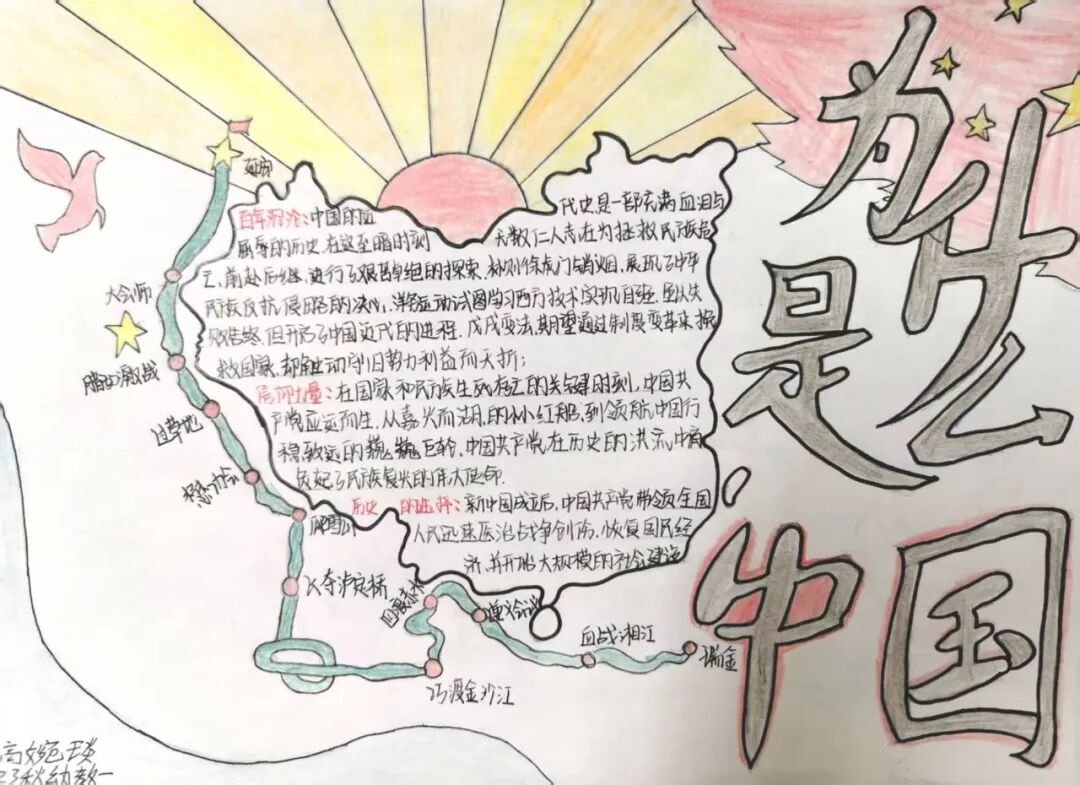 为什么
是
中国
延安
大会师
腊子口激战
过草地
爬雪山
飞夺泸定桥
巧渡金沙江
四渡赤水
遵义会议
血战湘江
瑞金
百年沉沦:中国 代史是一部充满血泪与
屈辱的历史,在这至暗时刻 无数仁人志士在为拯救民族危
亡,前赴后继,进行了艰苦卓绝的探索,林则徐虎门销烟,展现了中华
民族反抗侵略的决心,洋务运动试图学习西方技术实现自强,虽以失
败告终,但开启了中国近代的进程,戊戌变法,期望通过制度变革来
救国家,却触动守旧势力利益而夭折;
:在国家和民族生死存亡的关键时刻,中国共
产党应运而生,从嘉兴南湖的小小红船,到领航中国行
稳致远的巍巍巨轮,中国共产党在历史的洪流中肩
负起了民族复兴的伟大使命.
历史 的选择:新中国成立后,中国共产党带领全国
人民迅速医治战争创伤,恢复国民经
济,并开始大规模的社会建设
23秋幼教一